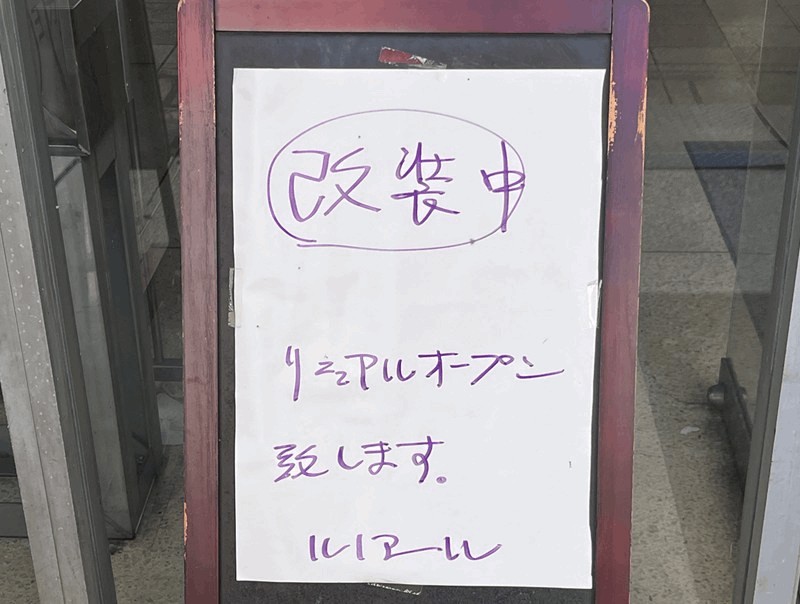 改装中
リニュアルオープン
致します。
ルノアール